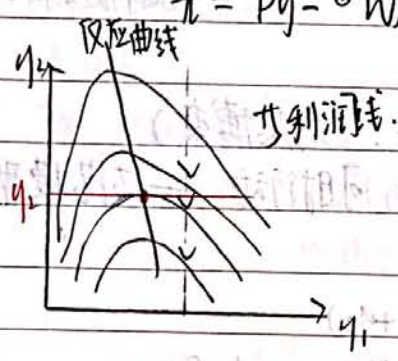 π = py - 
反应曲线
y₂
等利润线.
y₂
y₁